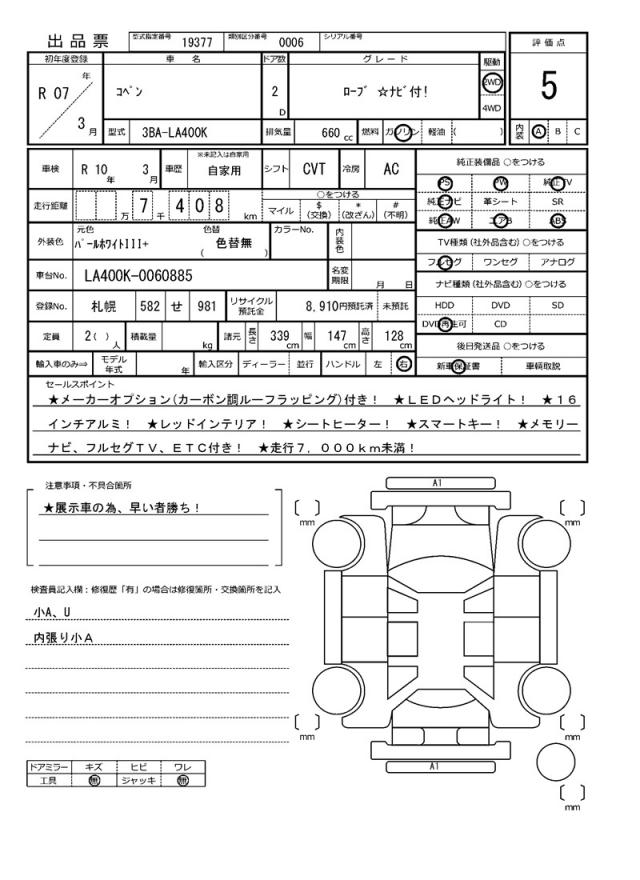 出品票 型式指定番号 19377 類別区分番号 0006 シリアル番号
評価点
5
内装 A B C
初年度登録 車名 ドア数 グレード 駆動
R 07 年 3 月 コペン 2 D ローブ ☆ナビ付! 2WD 4WD
型式 3BA-LA400K 排気量 660 cc 燃料 ガソリン 軽油 ( )
車検 R 10 年 3 月 車歴 ※未記入は自家用 自家用 シフト CVT 冷房 AC
走行距離 万 7 千 4 0 8 km ○をつける マイル $ (交換) * (改ざん) # (不明)
外装色 元色 パールホワイトIII+ 色替 ( 色替無 ) カラーNo. 内装色
車台No. LA400K-0060885 名変期限 月 日
登録No. 札幌 582 せ 981 リサイクル預託金 8,910円預託済 未預託
定員 2( ) 人 積載量 kg 諸元 長さ 339 cm 幅 147 cm 高さ 128 cm
輸入車のみ⇒ モデル年式 年 輸入区分 ディーラー 並行 ハンドル 左 右
純正装備品 ○をつける
PS PW 純正TV
純正ナビ 革シート SR
純正AW エアB ABS
TV種類(社外品含む) ○をつける
フルセグ ワンセグ アナログ
ナビ種類(社外品含む) ○をつける
HDD DVD SD
DVD再生可 CD
後日発送品 ○をつける
新車保証書 車輌取説
セールスポイント
★メーカーオプション(カーボン調ルーフラッピング)付き! ★LEDヘッドライト! ★16
インチアルミ! ★レッドインテリア! ★シートヒーター! ★スマートキー! ★メモリー
ナビ、フルセグTV、ETC付き! ★走行7,000km未満!
注意事項・不具合箇所
★展示車の為、早い者勝ち!
検査員記入欄:修復歴「有」の場合は修復箇所・交換箇所を記入
小A、U
内張り小A
ドアミラー キズ ヒビ ワレ
工具 無 ジャッキ 無
A1
[ ] mm
[ ] mm
[ ] mm
[ ] mm
A1
[ ] mm